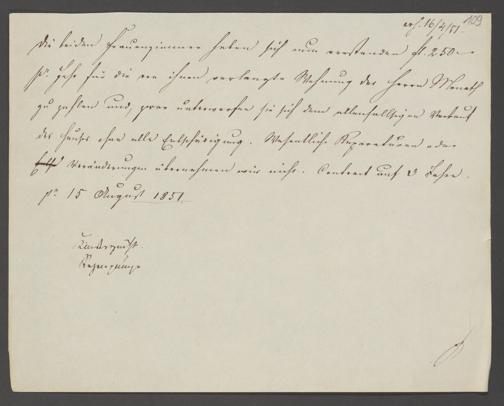 109
erh. 16/4/51.
Die beiden Frauenzimmer haben sich nun verstanden fl. 250.–
pr. Jahr für die von ihnen verlangte Wohnung des Herrn
zu zahlen und, zwar unterwerfen sie sich dem allenfallsigen Verkauf
des Hauses ohne alle Entschädigung. Wesentliche Reparaturen oder
Veränderungen übernehmen wir nicht. Contract auf 3 Jahre.
pr. 15 August 1851.